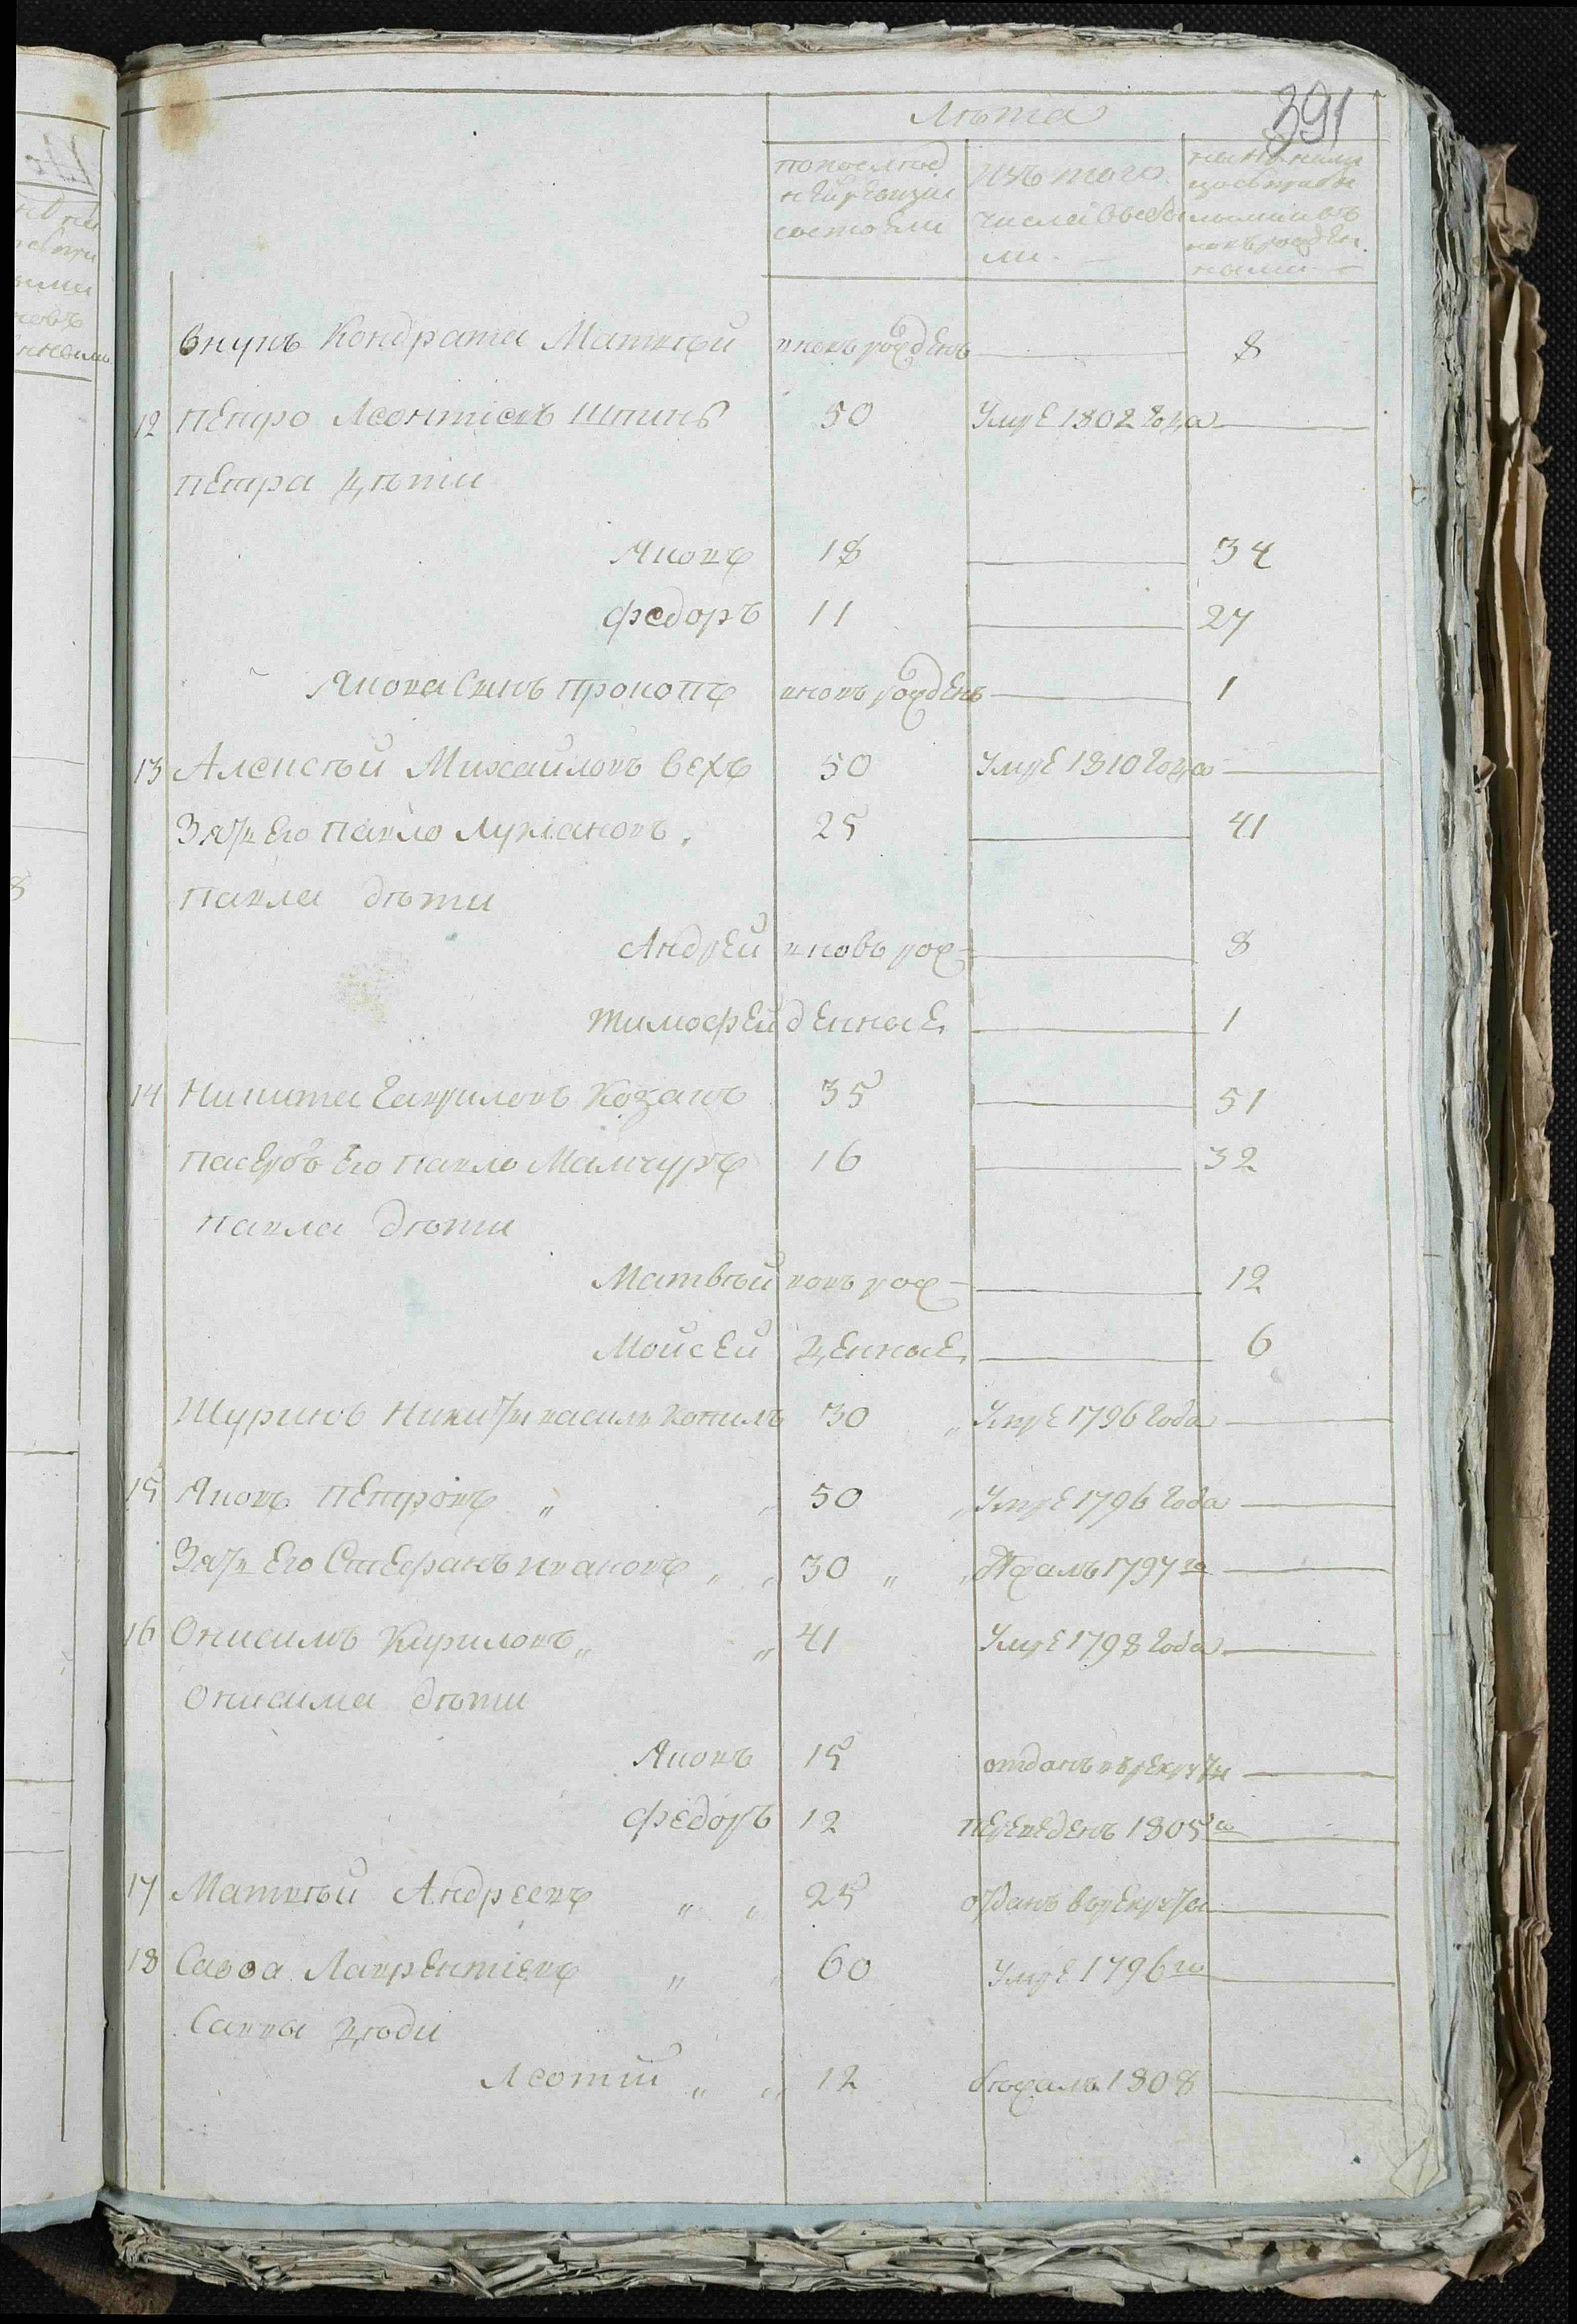 391
Лѣта
по послѣд
ней ревизіи
состояли
изъ того
числа выбы
ли
на лицо
съ прибы
лыми и въ
новъ рожден
ными
внукъ Кондрата Матвѣй вновъ рожденъ 8
12 Петро Леонтіевъ Шпинь 50 Умре 1802 года
Петра дѣти
Яковъ 18 34
Федоръ 11 27
Якова синъ Прокопъ вновъ рожденъ 1
13 Алексѣй Михайловъ Вехъ 50 Умре 1810 года
Зять Его Павло Лукіановъ 25 41
Павла дѣти
Андрей вновь рож- 8
Тимофей денные 1
14 Никита Гавриловъ Козакъ 35 51
пасербъ Его Павло Мамчуръ 16 32
Павла дѣти
Матвѣй новъ рож- 12
Мойсей денные 6
Шуринъ Никиты Василь Копилъ 30 Умре 1796 года
15 Яковъ Петровъ 50 Умре 1796 года
Зять Его Стефанъ Ивановъ 30 бѣжалъ 1797 го
16 Онисимъ Кириловъ 41 Умре 1798 года
Онисима дѣти
Яковъ 15 отданъ въ рекруты
Федоръ 12 переведенъ 1805 го
17 Матвѣй Андреевъ 25 отданъ въ рекруты
18 Савва Лаврентіевъ 60 Умре 1796 го
Саввы дѣти
Леотій 12 бѣжалъ 1808